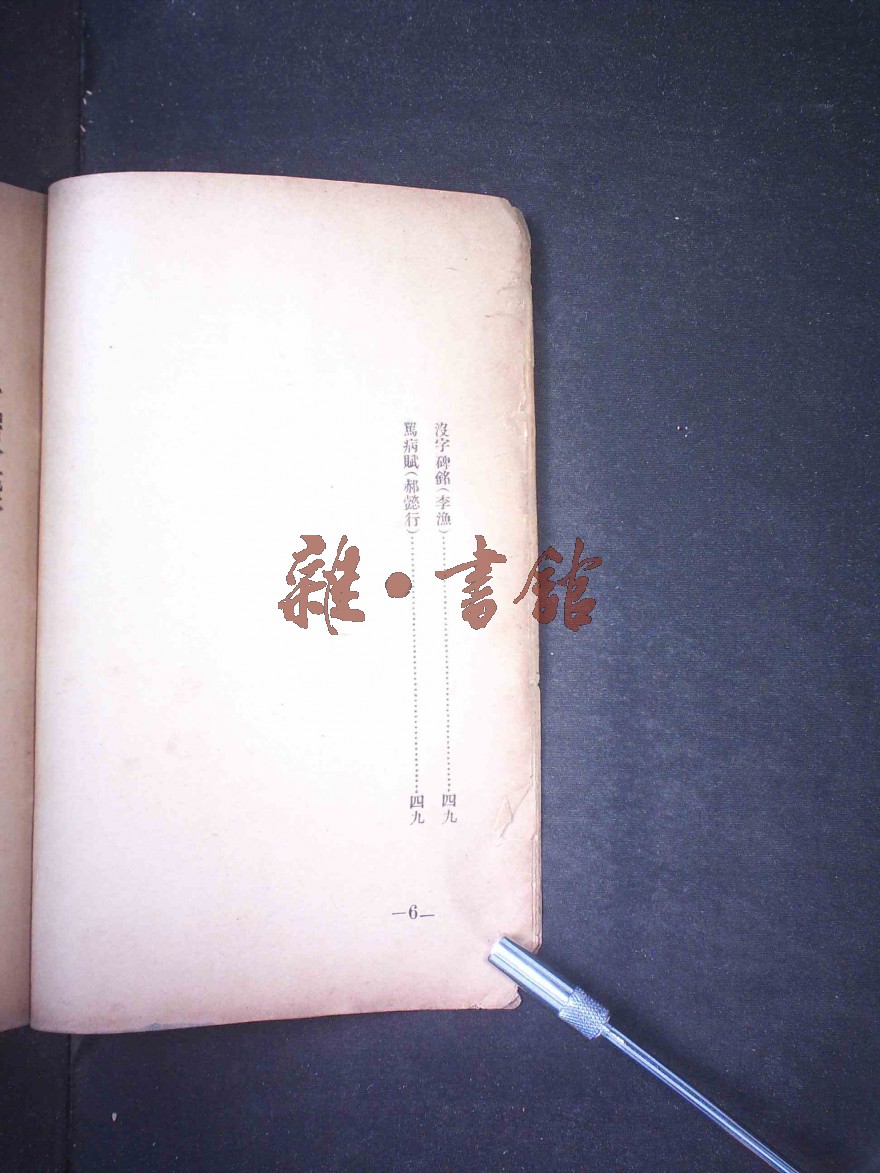 沒字碑銘（李漁）⋯⋯⋯⋯⋯⋯⋯⋯⋯⋯四九
罵病賦（郝懿行）⋯⋯⋯⋯⋯⋯⋯⋯⋯⋯四九
—6—
雜·書館